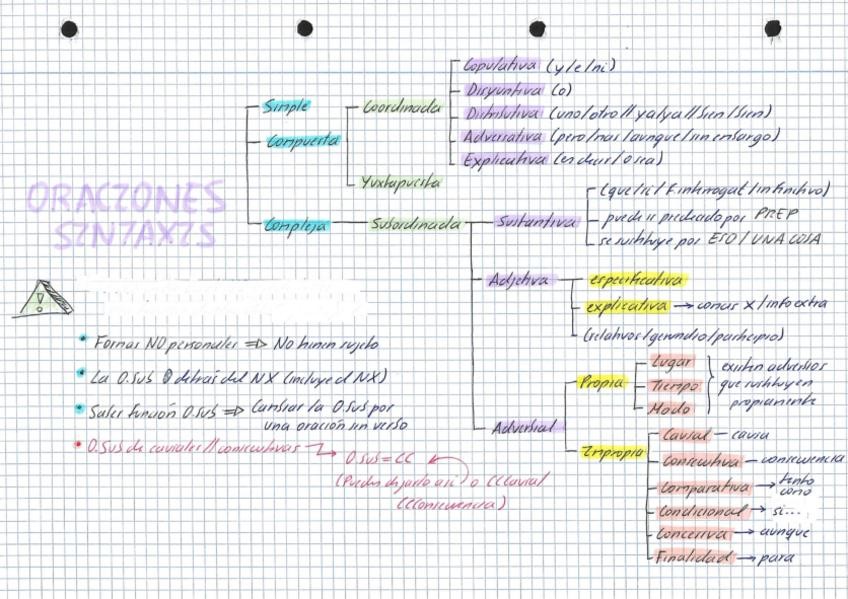 ORACIONES
SINTAXIS
Simple
Compuesta
Compleja
Coordinada
Yuxtapuesta
Subordinada
Copulativa (y/e/ni)
Disyuntiva (o)
Distributiva (uno/otro//ya/ya//bien/bien)
Adversativa (pero/mas/aunque/sin embargo)
Explicativa (es decir/o sea)
Sustantiva
(que/si/P.interrogat/infinitivo)
puede ir precedido por PREP
se sustituye por ESO/UNA COSA
Adjetiva
especificativa
explicativa → comas X/info extra
(relativos/gerundio/participio)
Adverbial
Propia
Lugar
Tiempo
Modo
existen adverbios
que sustituyen
propiamente
Impropia
Causal — causa
Consecutiva — consecuencia
Comparativa → tanto
como
Condicional → si...
Concesiva → aunque
Finalidad → para
!
• Formas NO personales ⇒ No tienen sujeto
• La O.sub detrás del NX (incluye el NX)
• Saber función O.sub ⇒ Cambiar la O.sub por
una oración sin verbo
• O.Sub de causales // consecutivas → O.sub = CC
(Puedes dejarlo así o CCCausal/
CCConsecuencia)